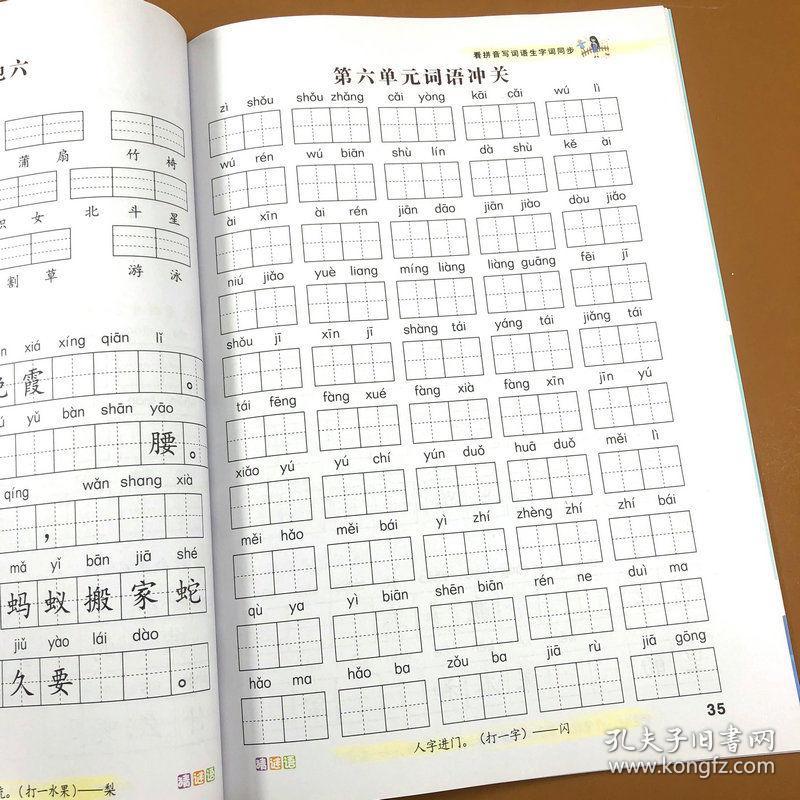 蒲 扇 竹 椅
女 北 斗 星
割 草 游 泳
xiá xíng qiān lǐ
霞 。
yǔ bàn shān yāo
腰 。
qíng wǎn shang xià
，
mǎ yǐ bān jiā shé
蚂 蚁 搬 家 蛇
jiǔ yào lái dào
久 要 。
(打一水果)——梨
猜谜语
看拼音写词语生字词同步
第六单元词语冲关
zì shǒu shǒu zhǎng cǎi yòng kāi cǎi wú lì
wú rén wú biān shù lín dà shù kě ài
ài xīn ài rén jiān dāo jiān jiào dòu jiǎo
niú jiǎo yuè liang míng liàng liàng guāng fēi jī
shǒu jī xīn jī shàng tái yáng tái jiǎng tái
tái fēng fàng xué fàng xià fàng xīn jīn yú
xiǎo yú yú chí yún duǒ huā duǒ měi lì
měi hǎo měi bái yì zhí zhèng zhí zhí bái
qù ya yì biān shēn biān rén ne duì ma
hǎo ma hǎo ba zǒu ba jiā rù jiā gōng
35
猜谜语
人字进门。(打一字)——闪
孔夫子旧书网
www.kongfz.com